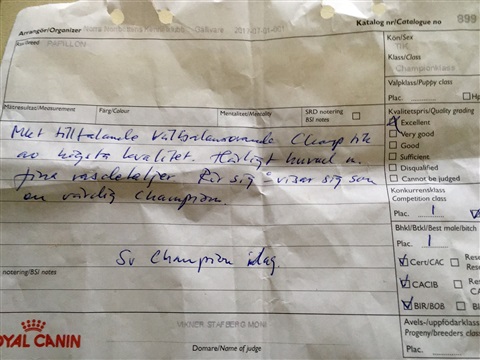 Arrangör/Organizer Norra Norrbottens Kennelklubb - Gällivare 2019-07-01-007
Katalog nr/Catalogue no 899
Ras/Breed PAPILLON
Kön/Sex
TIK
Klass/Class
Championklass
Valpklass/Puppy class
Plac.
Mätresultat/Measurement
Färg/Colour
Mentalitet/Mentality
SRD notering
BSI notes
Kvalitetspris/Quality grading
Excellent
Very good
Good
Sufficient
Disqualified
Cannot be judged
Mkt tilltalande välbalanserande Champ tik
av högsta kvalitet. Härligt huvud m.
fina rasdetaljer Rör sig o visar sig som
en värdig Champion.
Sv Champion idag.
Konkurrensklass
Competition class
Plac. 1
Bhkl/Btkl/Best male/bitch
Plac. 1
Cert/CAC
CACIB
BIR/BOB
notering/BSI notes
ROYAL CANIN
Domare/Name of judge
Avels-/uppfödarklass
Progeny/breeders class
Plac.